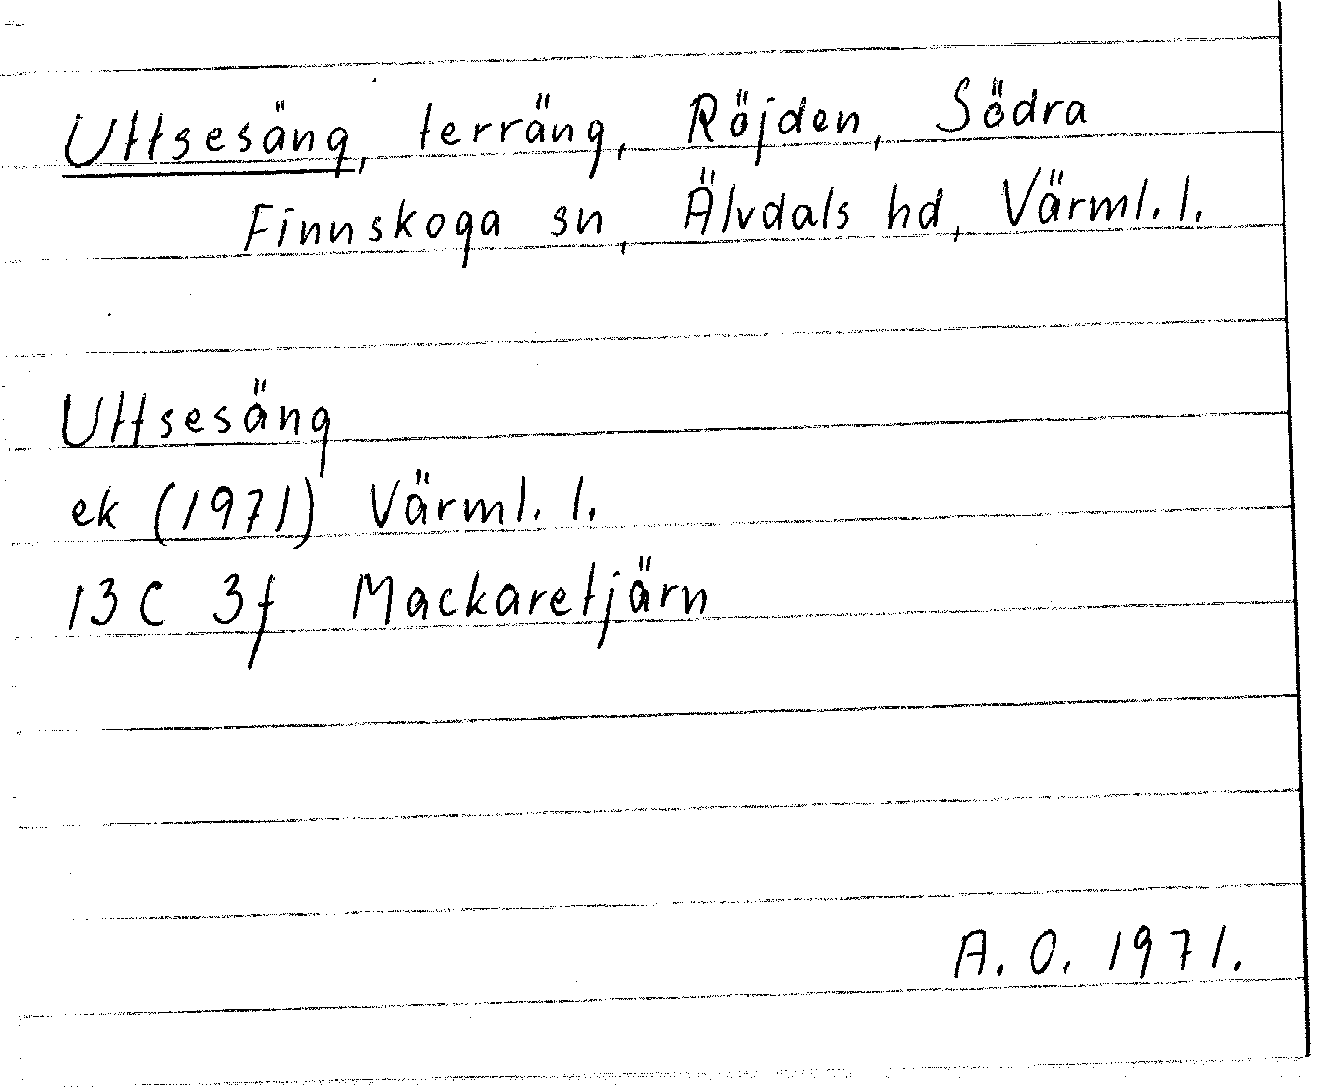 Uttsesäng, terräng, Röjden, Södra
Finnskoga sn, Älvdals hd, Värml. l.
Uttsesäng
ek (1971) Värml. l.
13C 3f Mackaretjärn
A. O. 1971.